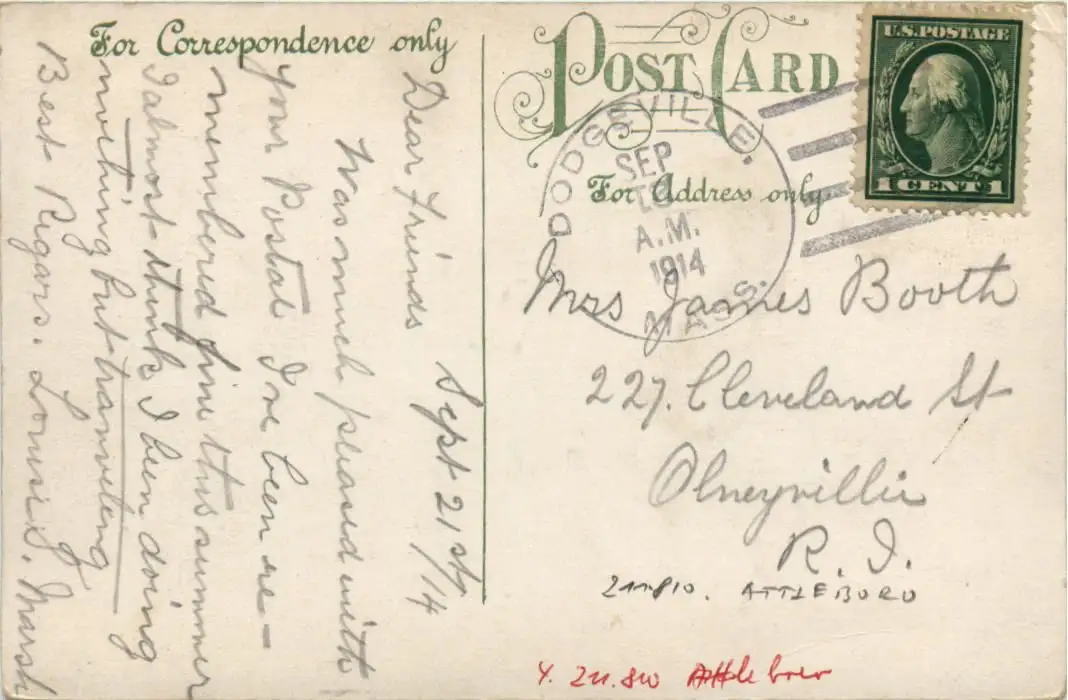 For Correspondence only
Sept 21st/14
Dear Friends
Was much pleased with
your Postal I've been re-
membered fine this summer
I almost think I been doing
nothing but tramveleng
Best Regars. Louis G. Marsh
POST CARD
For Address only
U.S. POSTAGE
1 CENT 1
DODGEVILLE.
SEP
A.M.
1914
MASS.
Mrs James Booth
227. Cleveland St
Olneyvillie
R. I.
ATTLEBORO